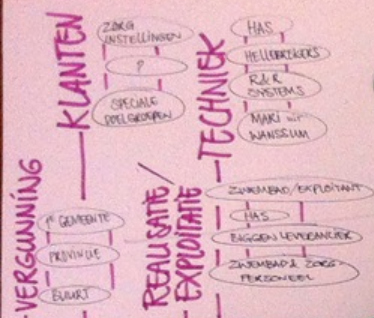 KLANTEN
ZORG
INSTELLINGEN
?
SPECIALE
DOELGROEPEN
TECHNIEK
HAS
HELLEBREKERS
R&R
SYSTEMS
MARI uit
WANSSUM
VERGUNNING
GEMEENTE
PROVINCIE
BUURT
REALISATIE/
EXPLOITATIE
ZWEMBAD/EXPLOITANT
HAS
BIGGEN LEVERANCIER
ZWEMBAD & ZORG-
PERSONEEL